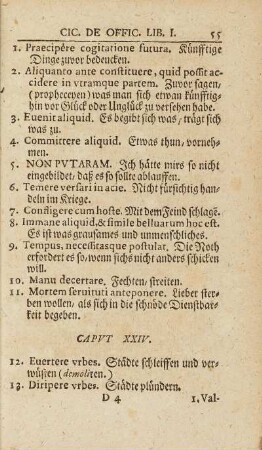 CIC. DE OFFIC. LIB. I. 55
1. Praecipére cogitatione futura. Künfftige
Dinge zuvor bedencken.
2. Aliquanto ante constituere, quid possit ac-
cidere in vtramque partem. Zuvor sagen,
(propheceyen) was man sich etwan künfftig-
hin vor Glück oder Unglück zu versehen habe.
3. Euenit aliquid. Es begibt sich was, trägt sich
was zu.
4. Committere aliquid. Etwas thun, vorneh-
men.
5. NON PVTARAM. Ich hätte mirs so nicht
eingebildet, daß es so sollte ablauffen.
6. Temere versari in acie. Nicht fürsichtig han-
deln im Kriege.
7. Confligere cum hoste. Mit dem Feind schlagē.
8. Immane aliquid, & simile belluarum hoc est.
Es ist was grausames und unmenschliches.
9. Tempus, necessitasque postulat. Die Noth
erfordert es so, wenn sichs nicht anders schicken
will.
10. Manu decertare. Fechten, streiten.
11. Mortem seruituti anteponere. Lieber ster-
ben wollen, als sich in die schnöde Dienstbar-
keit begeben.
CAPVT XXIV.
12. Euertere vrbes. Städte schleiffen und ver-
wüsten (demoliren.)
13. Diripere vrbes. Städte plündern.
D 4 1. Val-